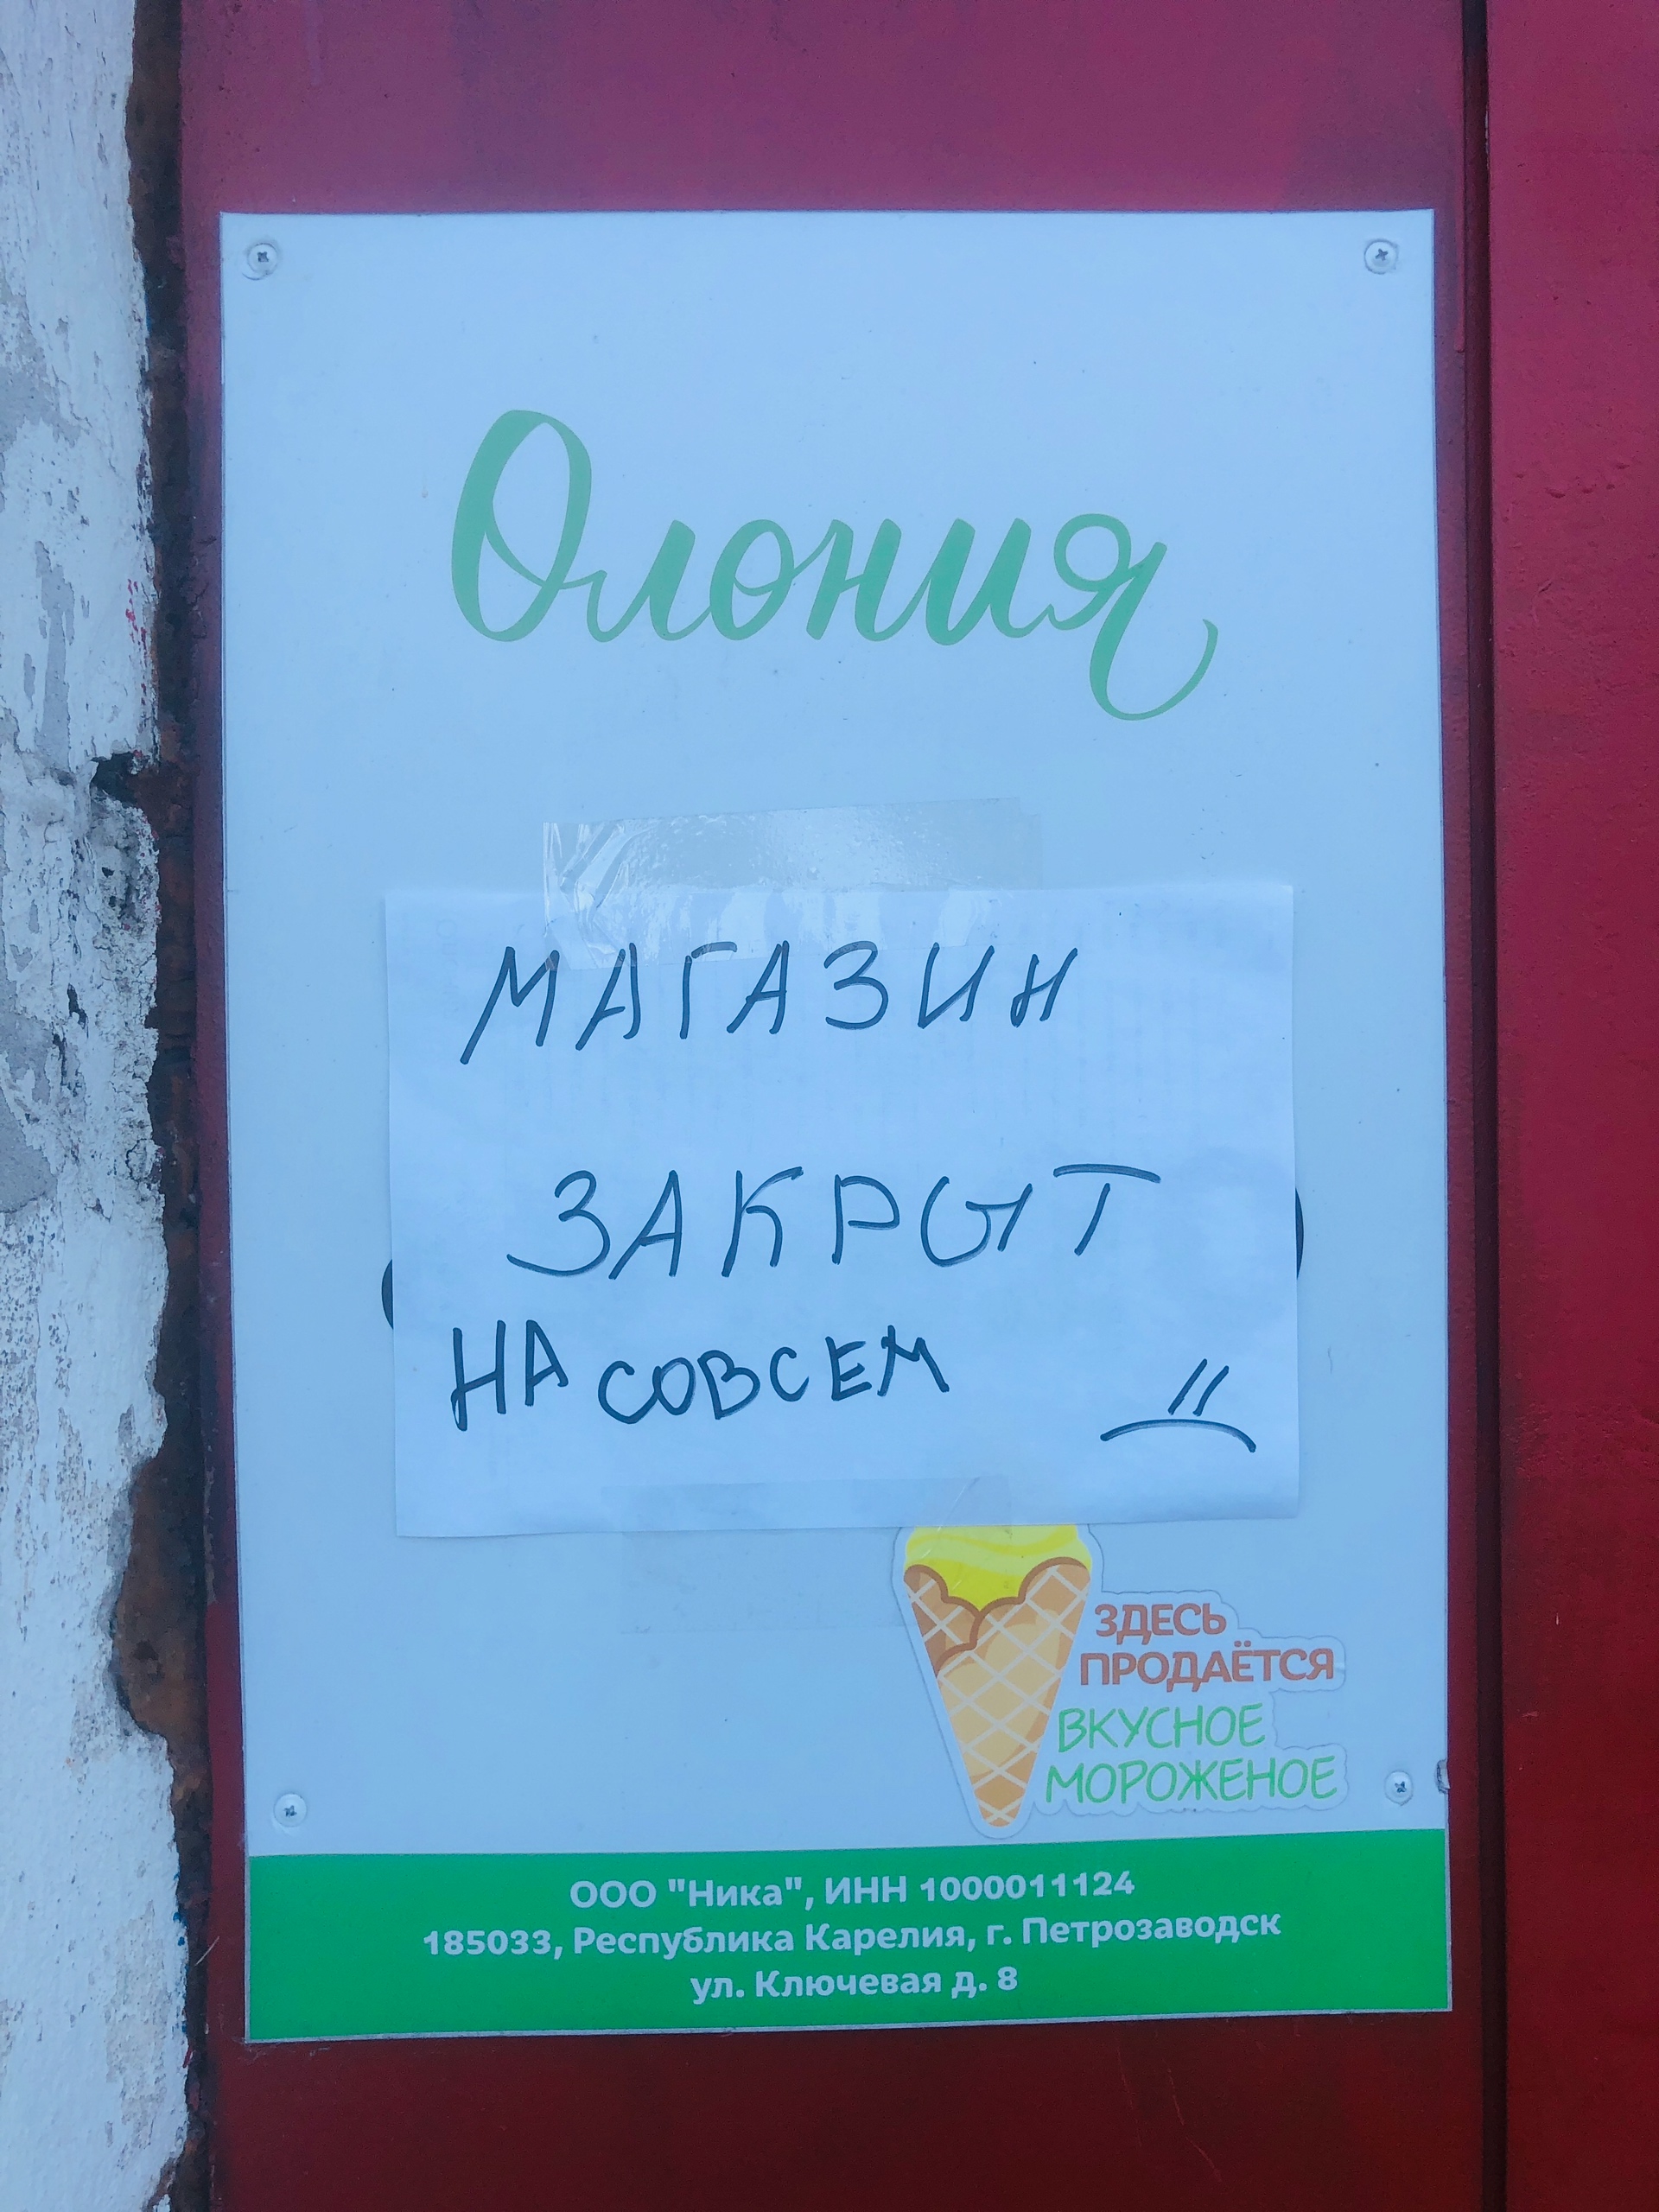 Олония
МАГАЗИН
ЗАКРЫТ
НА СОВСЕМ
ЗДЕСЬ
ПРОДАЁТСЯ
ВКУСНОЕ
МОРОЖЕНОЕ
ООО "Ника", ИНН 1000011124
185033, Республика Карелия, г. Петрозаводск
ул. Ключевая д. 8